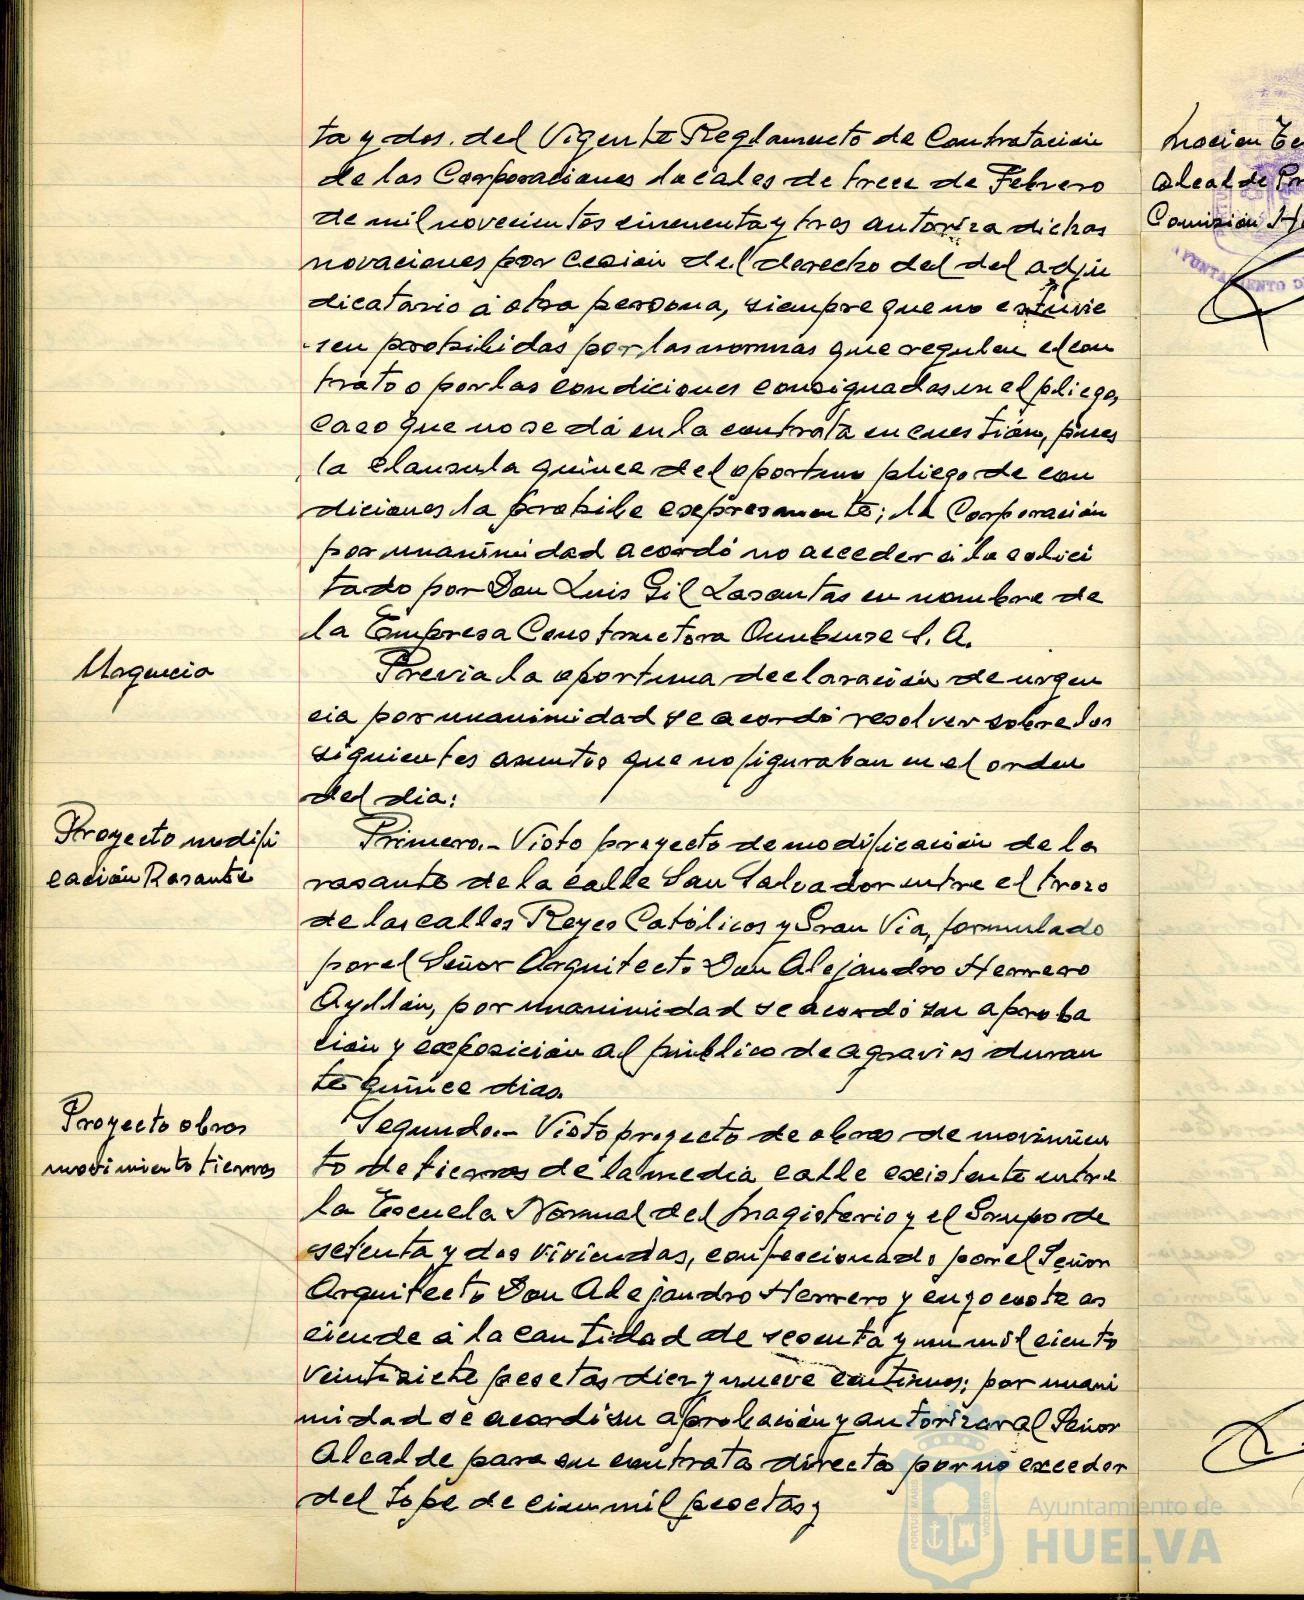 ta y dos. del Vigente Reglamento de Contratación
de las Corporaciones locales de trece de Febrero
de mil novecientos cincuenta y tres autoriza dichas
novaciones por cesión del derecho del del adju
dicatario á otra persona, siempre que no estuvie
sen prohibidas por las normas que regulen el con
trato o por las condiciones consignadas en el pliego,
caso que no se dá en la contrata en cuestión, pues
la clausula quince del oportuno pliego de con
diciones la prohibe expresamente; la Corporación
por unanimidad acordó no acceder á lo solici
tado por Don Luis Gil Lasantas en nombre de
la Empresa Constructora Onubense S. A.
Urgencia
Previa la oportuna declaración de urgen
cia por unanimidad se acordó resolver sobre los
siguientes asuntos que no figuraban en el orden
del dia:
Proyecto modifi
cación Rasante
Primero.- Visto proyecto de modificación de la
rasante de la calle San Salvador entre el trozo
de las calles Reyes Católicos y Gran Via, formulado
por el Señor Arquitecto Don Alejandro Herrero
Ayllón, por unanimidad se acordó su aproba
ción y exposición al público de agravios duran
te quince dias.
Proyecto obras
movimiento tierras
Segundo.- Visto proyecto de obras de movimien
to de tierras de la media calle existente entre
la Escuela Normal del Magisterio y el Grupo de
setenta y dos viviendas, confeccionado por el Señor
Arquitecto Don Alejandro Herrero y cuyo coste as
ciende á la cantidad de sesenta y un mil ciento
veintisiete pesetas diez y nueve centimos; por unani
midad se acordó su aprobación y autorizar al Señor
Alcalde para su contrata directa por no exceder
del tope de cien mil pesetas y
Moción
Alcalde
Comisión
AYUNTAMIENTO DE
PORTUS MARIS
CUSTODIA
Ayuntamiento de
HUELVA